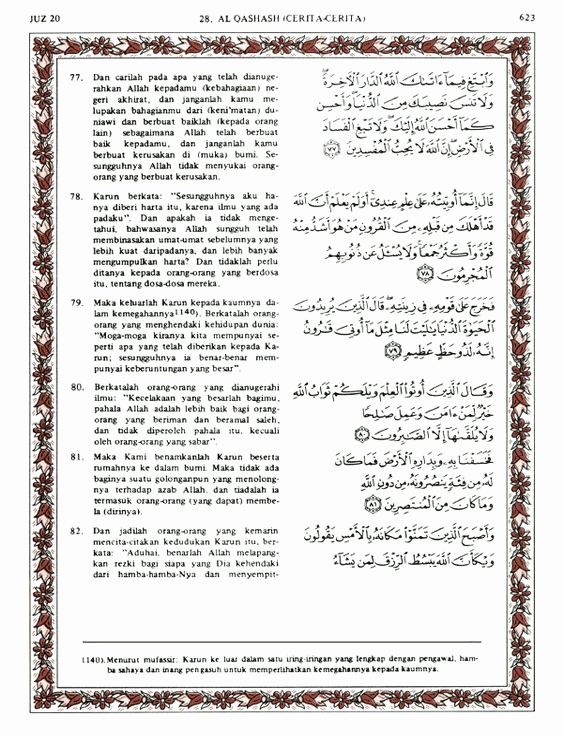 JUZ 20
28. AL QASHASH (CERITA-CERITA)
623
77. Dan carilah pada apa yang telah dianuge-
rahkan Allah kepadamu (kebahagiaan) ne-
geri akhirat, dan janganlah kamu me-
lupakan bahagianmu dari (keni'matan) du-
niawi dan berbuat baiklah (kepada orang
lain) sebagaimana Allah telah berbuat
baik kepadamu, dan janganlah kamu
berbuat kerusakan di (muka) bumi. Se-
sungguhnya Allah tidak menyukai orang-
orang yang berbuat kerusakan.
وَٱبۡتَغِ فِيمَآ ءَاتَىٰكَ ٱللَّهُ ٱلدَّارَ ٱلۡأَخِرَةَۖ
وَلَا تَنسَ نَصِيبَكَ مِنَ ٱلدُّنۡيَاۖ وَأَحۡسِن
كَمَآ أَحۡسَنَ ٱللَّهُ إِلَيۡكَۖ وَلَا تَبۡغِ ٱلۡفَسَادَ
فِي ٱلۡأَرۡضِۖ إِنَّ ٱللَّهَ لَا يُحِبُّ ٱلۡمُفۡسِدِينَ ٧٧
78. Karun berkata: "Sesungguhnya aku ha-
nya diberi harta itu, karena ilmu yang ada
padaku". Dan apakah ia tidak menge-
tahui, bahwasanya Allah sungguh telah
membinasakan umat-umat sebelumnya yang
lebih kuat daripadanya, dan lebih banyak
mengumpulkan harta? Dan tidaklah perlu
ditanya kepada orang-orang yang berdosa
itu, tentang dosa-dosa mereka.
قَالَ إِنَّمَآ أُوتِيتُهُۥ عَلَىٰ عِلۡمٍ عِندِيٓۚ أَوَلَمۡ يَعۡلَمۡ أَنَّ ٱللَّهَ
قَدۡ أَهۡلَكَ مِن قَبۡلِهِۦ مِنَ ٱلۡقُرُونِ مَنۡ هُوَ أَشَدُّ مِنۡهُ
قُوَّةً وَأَكۡثَرُ جَمۡعًاۚ وَلَا يُسۡـَٔلُ عَن ذُنُوبِهِمُ
ٱلۡمُجۡرِمُونَ ٧٨
79. Maka keluarlah Karun kepada kaumnya da-
lam kemegahannya1140). Berkatalah orang-
orang yang menghendaki kehidupan dunia:
"Moga-moga kiranya kita mempunyai se-
perti apa yang telah diberikan kepada Ka-
run; sesungguhnya ia benar-benar mem-
punyai keberuntungan yang besar".
فَخَرَجَ عَلَىٰ قَوۡمِهِۦ فِي زِينَتِهِۦۖ قَالَ ٱلَّذِينَ يُرِيدُونَ
ٱلۡحَيَوٰةَ ٱلدُّنۡيَا يَٰلَيۡتَ لَنَا مِثۡلَ مَآ أُوتِيَ قَٰرُونُ
إِنَّهُۥ لَذُو حَظٍّ عَظِيمٍ ٧٩
80. Berkatalah orang-orang yang dianugerahi
ilmu: "Kecelakaan yang besarlah bagimu,
pahala Allah adalah lebih baik bagi orang-
orang yang beriman dan beramal saleh,
dan tidak diperoleh pahala itu, kecuali
oleh orang-orang yang sabar".
وَقَالَ ٱلَّذِينَ أُوتُواْ ٱلۡعِلۡمَ وَيۡلَكُمۡ ثَوَابُ ٱللَّهِ
خَيۡرٌ لِّمَنۡ ءَامَنَ وَعَمِلَ صَٰلِحًا
وَلَا يُلَقَّىٰهَآ إِلَّا ٱلصَّٰبِرُونَ ٨٠
81. Maka Kami benamkanlah Karun beserta
rumahnya ke dalam bumi. Maka tidak ada
baginya suatu golonganpun yang menolong-
nya terhadap azab Allah, dan tiadalah ia
termasuk orang-orang (yang dapat) membe-
la (dirinya).
فَخَسَفۡنَا بِهِۦ وَبِدَارِهِ ٱلۡأَرۡضَ فَمَا كَانَ
لَهُۥ مِن فِئَةٍ يَنصُرُونَهُۥ مِن دُونِ ٱللَّهِ
وَمَا كَانَ مِنَ ٱلۡمُنتَصِرِينَ ٨١
82. Dan jadilah orang-orang yang kemarin
mencita-citakan kedudukan Karun itu, ber-
kata: "Aduhai, benarlah Allah melapang-
kan rezki bagi siapa yang Dia kehendaki
dari hamba-hamba-Nya dan menyempit-
وَأَصۡبَحَ ٱلَّذِينَ تَمَنَّوۡاْ مَكَانَهُۥ بِٱلۡأَمۡسِ يَقُولُونَ
وَيۡكَأَنَّ ٱللَّهَ يَبۡسُطُ ٱلرِّزۡقَ لِمَن يَشَآءُ
1140). Menurut mufassir: Karun ke luar dalam satu iring-iringan yang lengkap dengan pengawal, ham-
ba sahaya dan inang pengasuh untuk memperlihatkan kemegahannya kepada kaumnya.